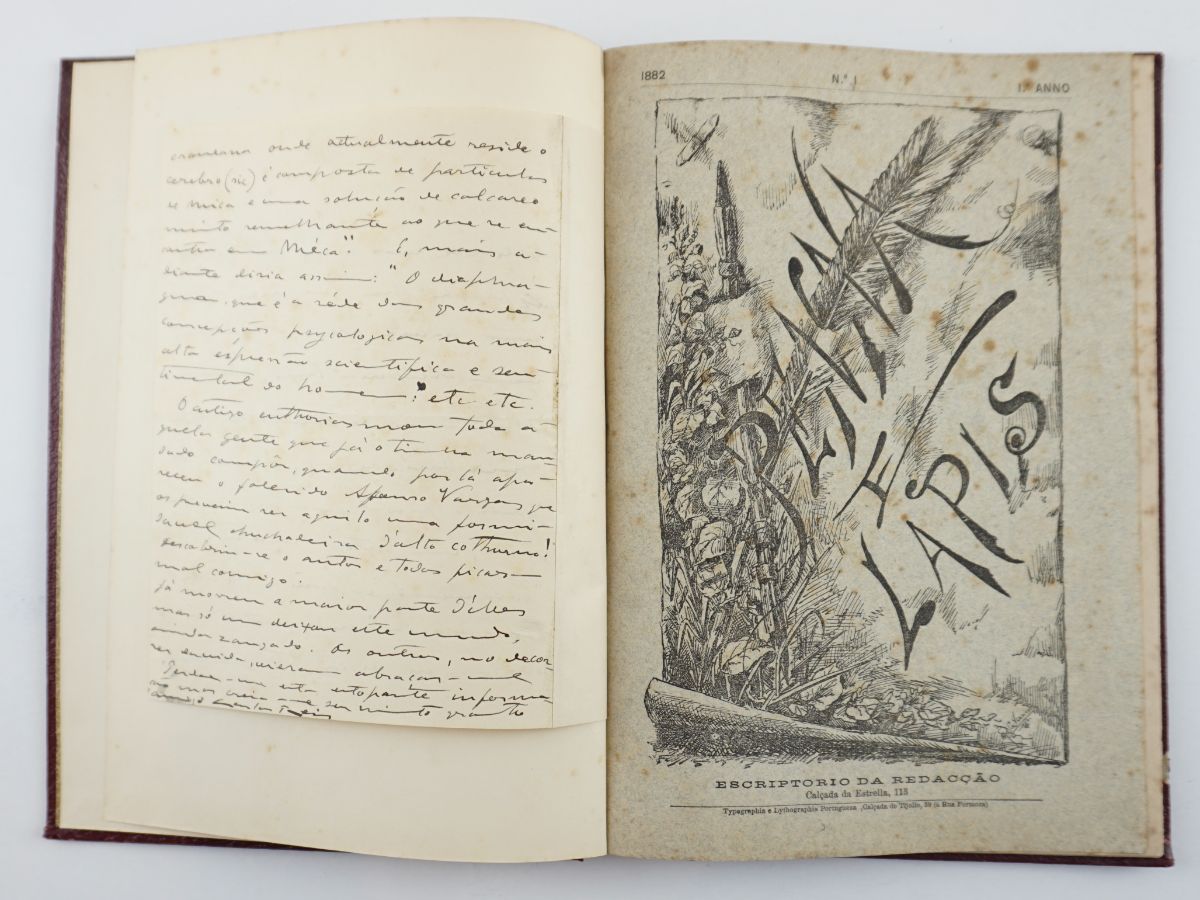 craneana onde actualmente reside o
cerebro (sic) é composta de particulas
de mica e uma solução de calcareo
muito semelhante ao que se en-
contra em Méca". E, mais a-
diante dizia assim: "O diaphra-
gma, que é a séde das grandes
concepções psycologicas na mais
alta expressão scientifica e sen-
timental do homem" etc etc.
O artigo enthusiasmou toda a-
quella gente que já o tinha man-
dado compôr, quando por lá apa-
receu o fallecido Afonso Vargas que
os preveniu ser aquilo uma formi-
davel chuchadeira d'alto cothurno!
Descobriu-se o autor e todos ficaram
mal comigo.
Já morreu a maior parte d'elles
mas só um deixou este mundo,
ainda zangado. Os outros, no decor-
rer da vida, vieram abraçar-me!
Perdoe-me esta estopante informa-
ção mas creia-me seu muito grato
1882
N.º 1
1.º ANNO
BENGALA
E
LAPIS
ESCRIPTORIO DA REDACÇÃO
Calçada da Estrella, 113
Typographia e Lythographia Portugueza, Calçada do Tijolo, 39 (á Rua Formosa)